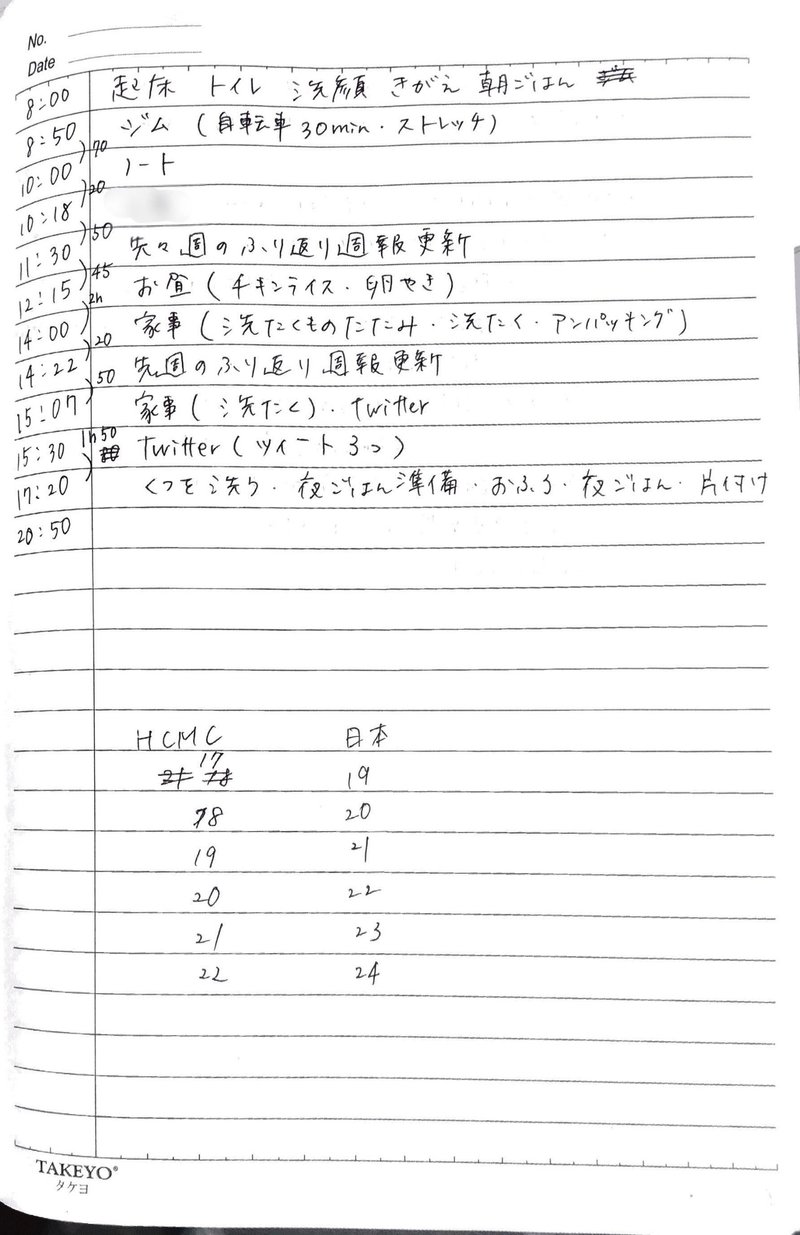 No.
Date
8:00 起床 トイレ 洗顔 きがえ 朝ごはん
8:50 ジム (自転車 30min・ストレッチ)
70
10:00 ノート
20
10:18
50
11:30 先々週のふり返り週報更新
45
12:15 お昼 (チキンライス・卵やき)
2h
14:00 家事 (洗たくものたたみ・洗たく・アンパッキング)
20
14:22 先週のふり返り週報更新
50
15:07 家事 (洗たく)・twitter
15:30 twitter (ツイート3つ)
1h50
17:20 くつを洗う・夜ごはん準備・おふろ・夜ごはん・片付け
20:50
HCMC 日本
17 19
18 20
19 21
20 22
21 23
22 24
TAKEYO®
タケヨ